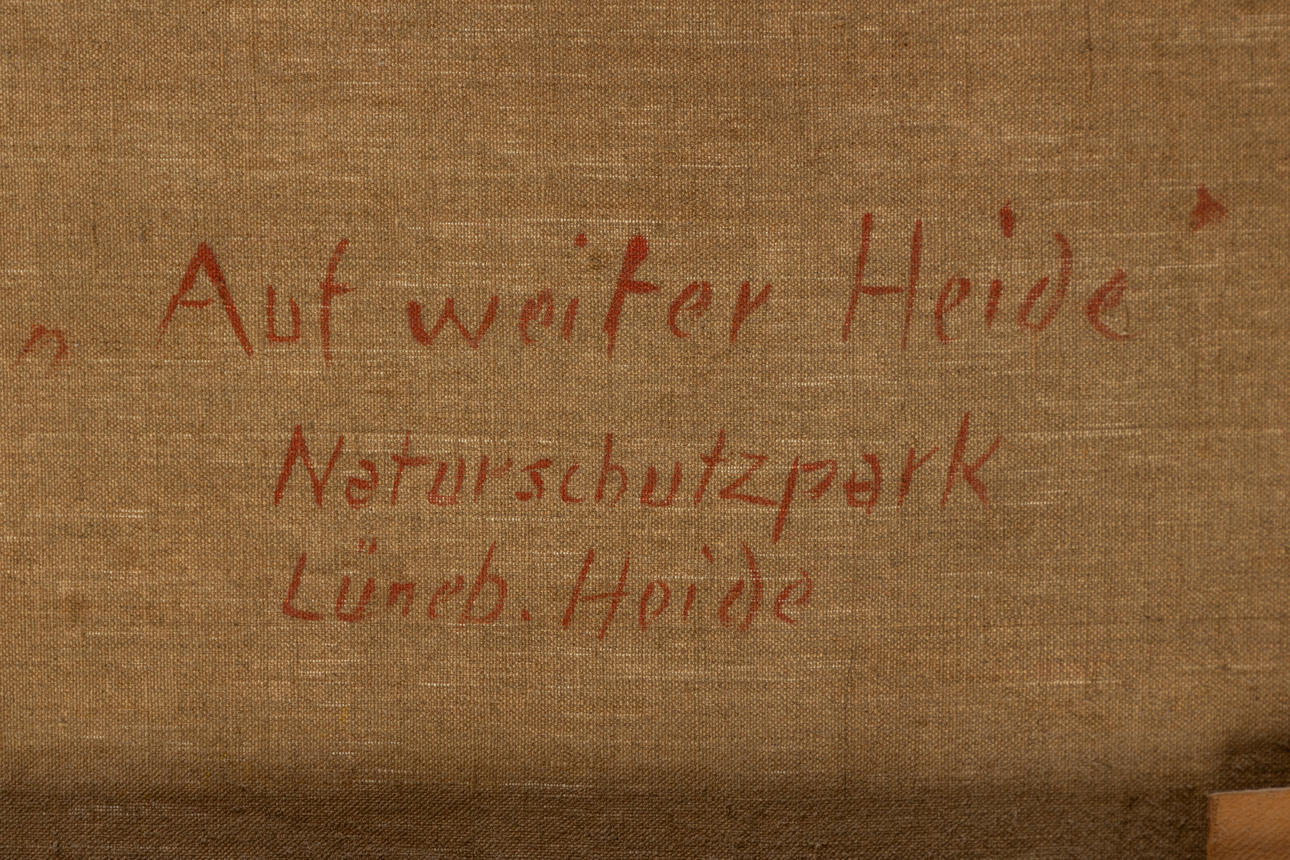 „Auf weiter Heide"
Naturschutzpark
Lüneb. Heide